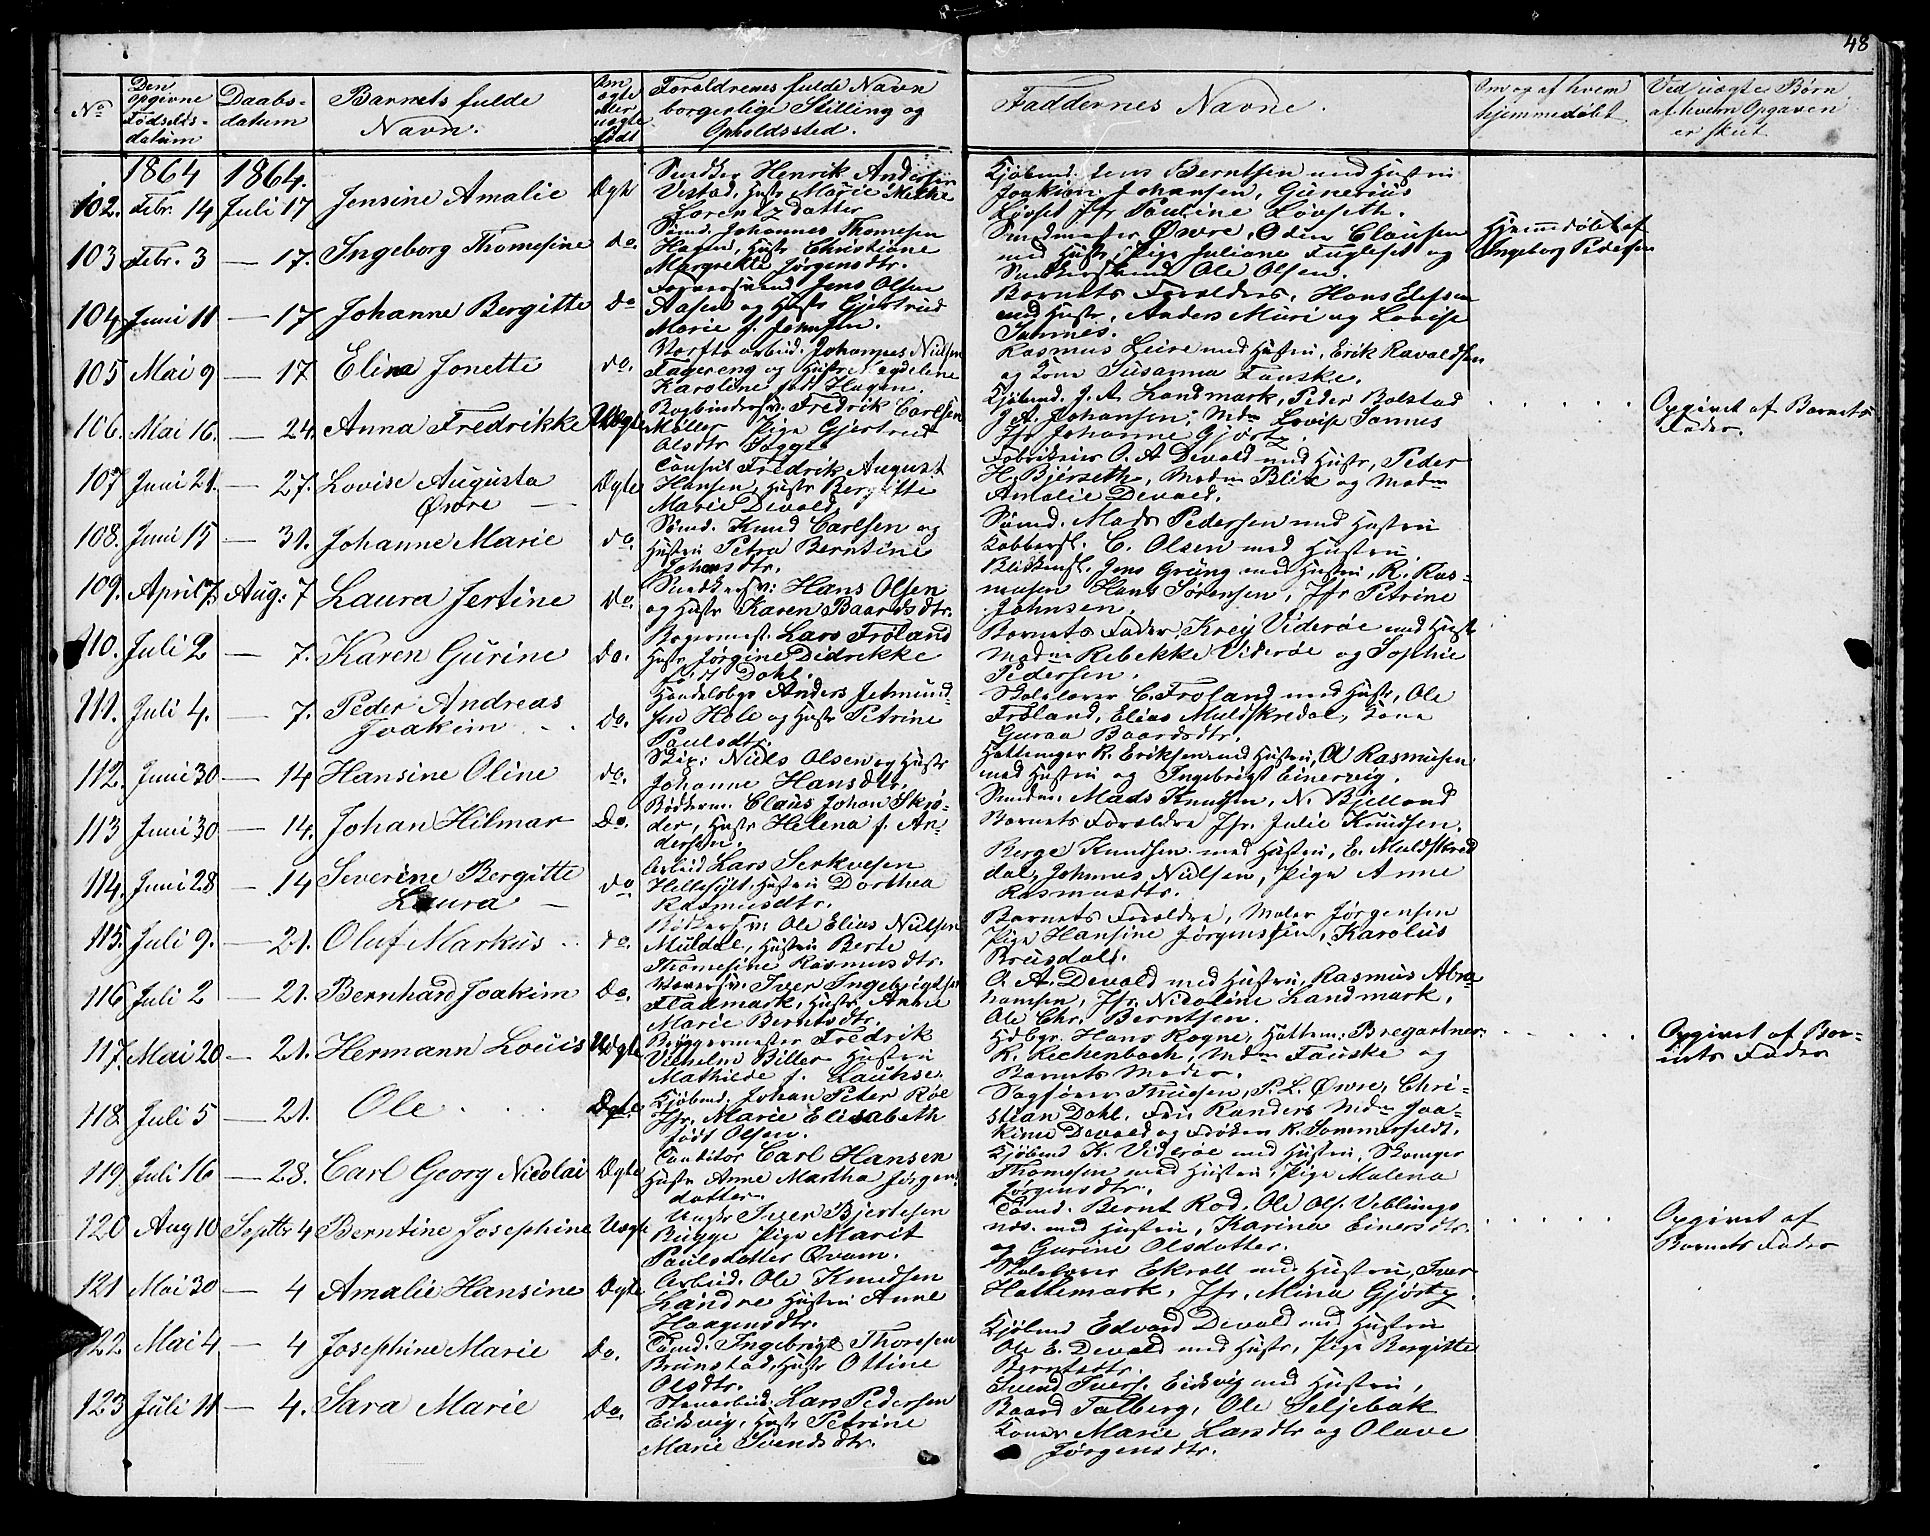 48
No
Den opgivne Fødselsdatum
Daabsdatum
Barnets fulde Navn.
Om ægte eller uægte født
Forældrenes fulde Navn borgerlige Stilling og Opholdssted.
Faddernes Navne.
Om og af hvem hjemmedøbt
Ved uægte Børn af hvem Opgaven er skeet
1864 1864.
102. Febr. 14 Juli 17 Jensine Amalie Ægte
Snedker Henrik Andersen
Vestad, Hustr Marie
Lorentzdatter
Kjøbmd. Jens Berntsen med Hustru
Joakim Johansen, Gunerius
Løvset Jfr Pauline Løvseth.
103 Febr. 3 — 17. Ingeborg Thomesine do.
Sømd. Johannes Thomesen
Hagen, Hustr Christiane
Margrethe Jørgensdtr.
Øwre, Oden Clausen
med Hustr, Pige Juliane Fugleset og
Snedkersvend Ole Olsen.
Hjemmdøbt af
Ingeborg Pedersen
104 Juni 11 — 17 Johanne Bergitte do
Jens Olsen
Aasen og Hustr Gjertrud
Marie f. Johnsen.
Barnets Forældre, Hans Elefsen
med Hustr, Anders Muri og Lovise
Sannes.
105 Mai 9 — 17 Elina Jonette do.
Værfts arbeid. Johannes Nielsen
Fagereng og Hustr Magdelene
Karoline født Hagen.
Rasmus Leire med Hustru, Erik Ravaldsen
og Kone Susanna Fauske.
106. Mai 16. — 24. Anna Fredrikke Uægte
Bogbindersv. Fredrik Carlsen
Møller Pige Gjertrud
Olsdtr Bogge
Kjøbmd. J. A. Landmark, Peder Bolstad
J. A. Johansen, Mdm Lovise Sannes
Jfr Johanne Gjørtz.
Opgivet af Barnets
Fader.
107 Juni 21. — 27. Lovise Augusta
Øwre — Ægte
Consul Fredrik August
Hansen, Hustr Bergitte
Marie Devold
Fabrikeier O. A Devold med Hustr, Peder
H. Bjerseth, Madm Blix og Madm
Amalie Devold.
108. Juni 15 — 31. Johanne Marie do.
Sømd. Knud Carlsen og
Hustru Petra Berntine
Johansdtr.
Sømd. Mads Pedersen med Hustru
Kobbersl. C. Olsen med Hustru
109. April 7. Aug. 7 Laura Jertine do.
Snedkersv: Hans Olsen
og Hustr Karen Baardsdtr.
Blikkensl. Jens Grung med Hustru, R. Rasmusen
Hans Sørensen, Jfr Petrine
Johnsen.
110. Juli 2 — 7. Karen Gurine do.
Bagermest. Lars Froland
Hustr Jørgine Didrikke
født Dahl.
Barnets Fader, Kreij Viderøe med Hustr
Madm Rebekke Viderøe og Sophie
Pedersen.
111. Juli 4. — 7. Peder Andreas
Joakim do.
Handelsbgr Anders Jetmundsen
Hole og Hustr Petrine
Paulsdtr.
Skolelærer C. Froland med Hustr, Ole
Froland, Elias Muldskredal, Kone
Guraa Baardsdtr.
112. Juni 30 — 14 Hansine Oline do.
Niels Olsen og Hustr
Johanne Hansdtr.
Hattemager R. Eriksen med Hustru, A Rasmusen
med Hustru og Ingebrigt Einervig.
113 Juni 30 — 14. Johan Hilmar do.
Bødkerm. Claus Johan Skrøder,
Hustr Helena f. Andersen.
Mads Knudsen, N. Bjelland
Barnets Forældre Jfr. Julie Knudsen.
114. Juni 28 — 14 Severine Bergitte
Laura — do
Arbeid Lars Serkvesen
Hellesylt, Hustru Dorthea
Rasmusdtr.
Berge Knudsen med Hustru, E. Muldskredal,
Johannes Nielsen, Pige Anne
Rasmusdtr.
115. Juli 9. — 21. Oluf Markus do.
Bødkersv: Ole Elias Nielsen
Muldal, Hustru Berte
Thomesine Rasmusdtr.
Barnets Forældre, Maler Jørgensen
Pige Hansine Jørgensen, Karolus
Brusdal.
116 Juli 2 — 21. Bernhard Joakim do.
Iver Ingebrigtsen
Fladmark, Hustr Anne
Marie Berntsdtr.
O. A. Devold med Hustru, Rasmus Abrahamsen,
Jfr. Nicoline Landmark,
Ole Chr. Berntsen.
117. Mai 20 — 21. Hermann Louis Uægte
Bryggermester Fredrik
Vilhelm Biller Hustru
Mathilde f. Lauhse.
Hdbgr. Hans Rogne, Hattem: Bregartner
R. Reichenbach, Mdm Fauske og
Barnets Moder.
Opgivet af Barnets
Fader
118. Juli 5 — 21. Ole Ægte
Kjøbmd. Johan Peter Røe
Marie Elisabeth
født Olsen.
Sagfører Thuesen, P. L. Øwre, Christian
Dahl, Fru Randers Mdm Joakime
Devold og Frøken R. Sommerfeldt.
119 Juli 16 — 28. Carl Georg Nicolai Ægte
Conditor Carl Hansen
Hustr Anne Martha Jørgensdatter
Kjøbmd K. Viderøe med Hustru, Skomager
Thomesen med Hustru, Pige Malena
Jørgensdtr.
120 Aug 10 Septbr 4 Berntine Josephine Uægte
Ungkr Iver Bjertesen
Rugge Pige Marit
Paulsdatter Øvam.
Sømd. Bernt Rod, Ole Ols. Veblungsnæs
med Hustru, Karina Einersdtr.
og Gurine Olsdatter.
Opgivet af
Barnets Fader
121 Mai 30 — 4 Amalie Hansine Ægte
Arbeid. Ole Knudsen
Landre Hustru Anne
Haagensdtr.
Skolelærer Ekroll med Hustru, Iver
Hattemark, Jfr. Mina Gjørtz.
122. Mai 4 — 4 Josephine Marie do.
Sømd. Ingebrigt Thoresen
Brunstad, Hustr Ottine
Olsdtr.
Kjøbmd Edvard Devold med Hustru
Ole E. Devold med Hustr, Pige Bergitte
Berntsdtr.
123 Juli 11 — 4. Sara Marie do.
Lars Pedersen
Eidsvig, Hustr Petrine
Marie Svendsdtr.
Svend Ivers. Eidsvig med Hustru,
Baard Talberg, Ole Seljebak
Koner Marie Larsdtr og Olave
Jørgensdtr.